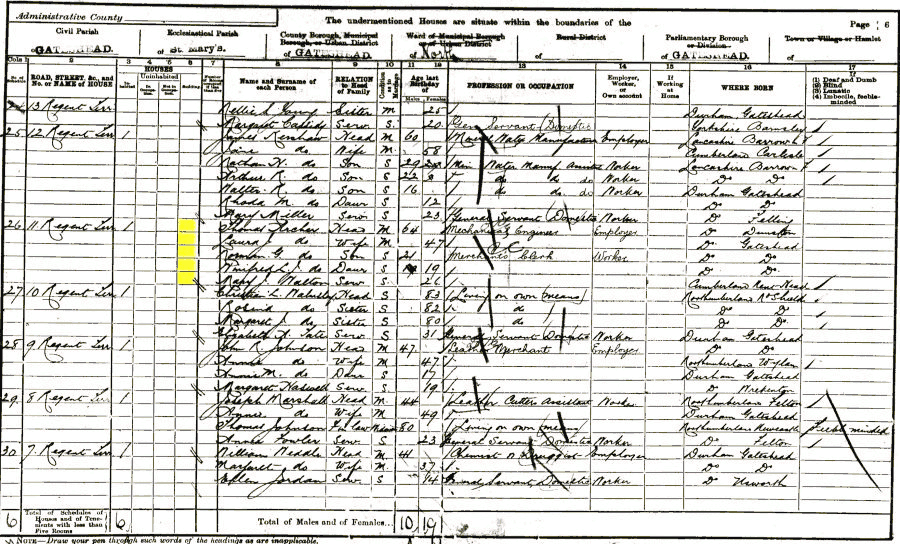 Administrative County
The undermentioned Houses are situate within the boundaries of the
Page 6
Civil Parish
of GATESHEAD.
Ecclesiastical Parish
of St Mary's.
County Borough, Municipal Borough, or Urban District
of GATESHEAD.
Ward of Municipal Borough or Urban District
of
Rural District
of
Parliamentary Borough or Division
of GATESHEAD.
Town or Village or Hamlet
of
ROAD, STREET, &c., and No. or NAME of HOUSE
HOUSES
Uninhabited
Name and Surname of each Person
RELATION to Head of Family
Condition as to Marriage
Age last Birthday of
Males Females
PROFESSION OR OCCUPATION
Employer, Worker, or Own account
If Working at Home
WHERE BORN
(1) Deaf and Dumb
(2) Blind
(3) Lunatic
(4) Imbecile, feeble-minded
13 Regent Terr Nellie S Young Sister M 25 Durham Gateshead
Margaret Serv S 20 Servant (Domestic Yorkshire Barnsley
25 12 Regent Terr 1 Head M 60 Water Manufacturer Employer Lancashire Barrow
Jane do Wife M 58 Cumberland Carlisle
Nathan H. do Son S 29 Min Water Manuf Worker Lancashire Barrow
Arthur R. do Son S 22 do do Worker Do Do
Walter R. do Son S 16 do do do Worker Durham Gateshead
Rhoda M. do Daur S 12 Do Do
Mary Miller Serv S 23 General Servant (Domestic Worker Do Felling
26 11 Regent Terr 1 Thomas Archer Head M 64 Mechanical Engineer Employer Do Dunston
Laura J do Wife M 47 Do Gateshead
Norman G. do Son S 21 Merchants Clerk Worker Do Do
Winifred L. do Daur S 19 Do Do
Mary Walton Serv S 26 Cumberland
27 10 Regent Terr 1 Christian L. Head S 83 Living on own (means) Northumberland No Shields
Rosina do Sister S 82 do Do Do
Margaret J. do Sister S 80 do Do Do
Elizabeth Serv S 31 General Servant Domestic Worker Durham Gateshead
28 9 Regent Terr 1 John R Johnson Head M 47 Leather Merchant Employer Do Do
Annie do Wife M 47 Northumberland Wylam
Annie M. do Daur S 17 Durham Gateshead
Margaret Haswell Serv S 19 Do Wrekenton
29 8 Regent Terr 1 Joseph Marshall Head M 44 Leather Cutters Assistant Worker Northumberland Felton
Annie do Wife M 49 Durham Gateshead
Thomas Johnson F in law 80 Living on own (means) Northumberland Newcastle Feeble minded
Annie Fowler Serv S 23 General Servant Domestic Worker Do Felton
30 7 Regent Terr 1 William Weddle Head M 41 Chemist & Druggist Employer Durham Gateshead
Margaret do Wife M 37 Do Do
Ellen Jordan Serv S 14 General Servant Domestic Worker Do Usworth
6 Total of Schedules of Houses and of Tenements with less than Five Rooms 6
Total of Males and of Females... 10 19
NOTE—Draw your pen through such words of the headings as are inapplicable.